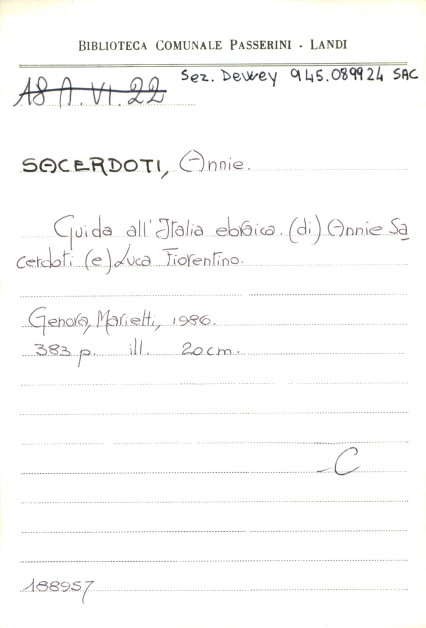 BIBLIOTECA COMUNALE PASSERINI - LANDI
A8 A.VI.22 Sez. Dewey 945.089924 SAC
SACERDOTI, Annie.
Guida all'Italia ebraica. (di) Annie Sa
cerdoti (e) Luca Fiorentino.
Genova, Marietti, 1986.
383 p. ill. 20 cm.
C
188957